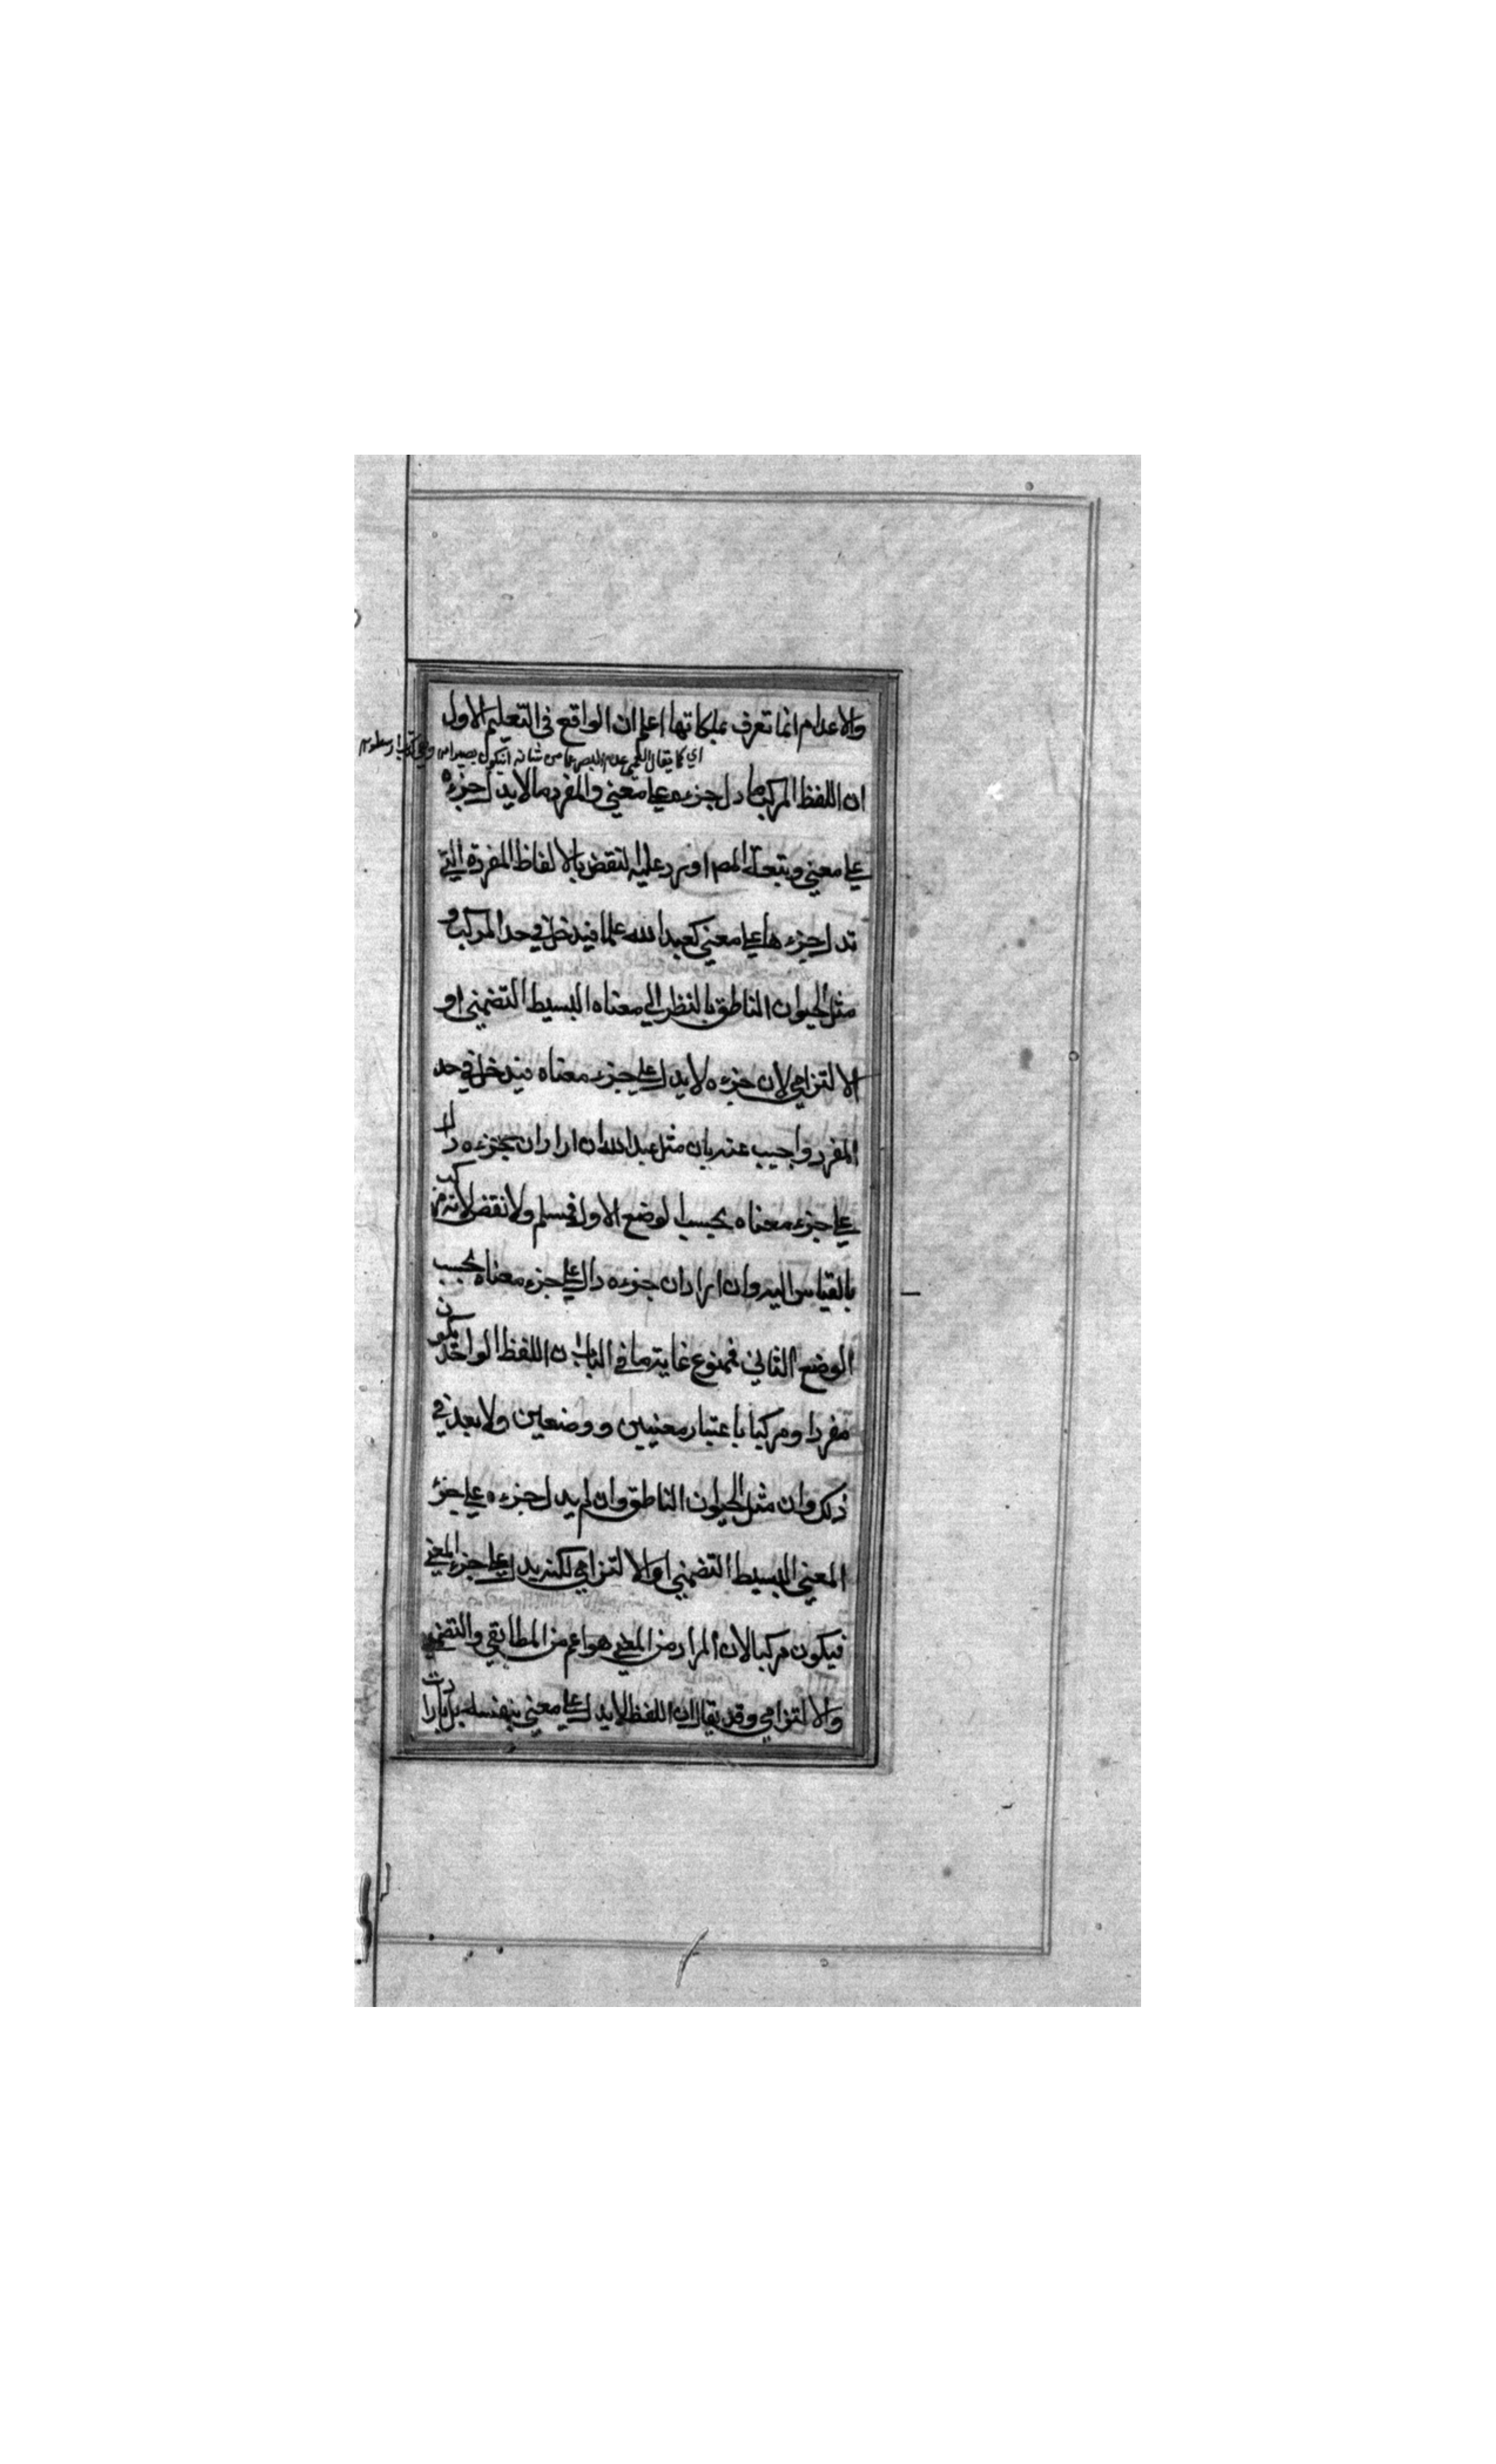 والاعدام انما تعرف بملكاتها اعلم ان الواقع في التعليم الاول
اي كما يقال العمي عدم البصر عما من شانه ان يكون بصيرا
ان اللفظ المركب ما دل جزءه علي معني والمفرد ما لا يدل جزءه
علي معني وتبعه المصـ اورد عليه النقض بالالفاظ المفردة التي
تدل جزءها علي معني كعبد الله علما فيدخل في حد المركب و
مثل الحيوان الناطق بالنظر الي معناه البسيط التضمني او
الالتزامي لان جزءه لا يدل علي جزء معناه فيدخل في حد
المفرد واجيب عنه بان مثل عبد الله ان اراد ان جزءه دال
علي جزء معناه بحسب الوضع الاول فمسلم ولا نقض لانه مركب
بالقياس اليه وان اراد ان جزءه دال علي جزء معناه بحسب
الوضع الثاني فممنوع غاية ما في الباب ان اللفظ الواحد يكون
مفردا ومركبا باعتبار معنيين ووضعين ولا بعد في
ذلك وان مثل الحيوان الناطق وان لم يدل جزءه علي جزء
المعني البسيط التضمني او الالتزامي لكنه يدل علي جزء المعني
فيكون مركبا لان المراد من المعني هو اعم من المطابقي والتضمني
والالتزامي وقد يقال ان اللفظ لا يدل علي معني بنفسه بل بارادت